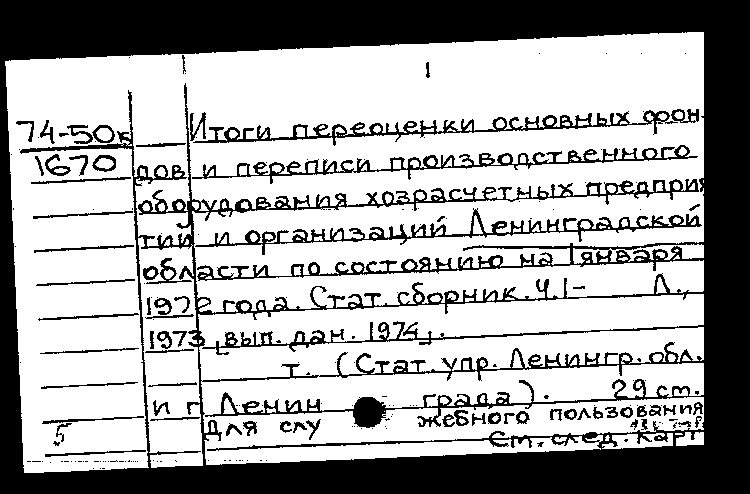 1
74-50к Итоги переоценки основных фон-
1670 дов и переписи производственного
оборудования хозрасчетных предприя
тий и организаций Ленинградской
области по состоянию на 1 января
1972 года. Стат. сборник. Ч.1- Л.,
1973 [вып. дан. 1974].
т. (Стат. упр. Ленингр. обл.
и г Ленин града). 29 см.
5 Для слу жебного пользования
См. след. карт